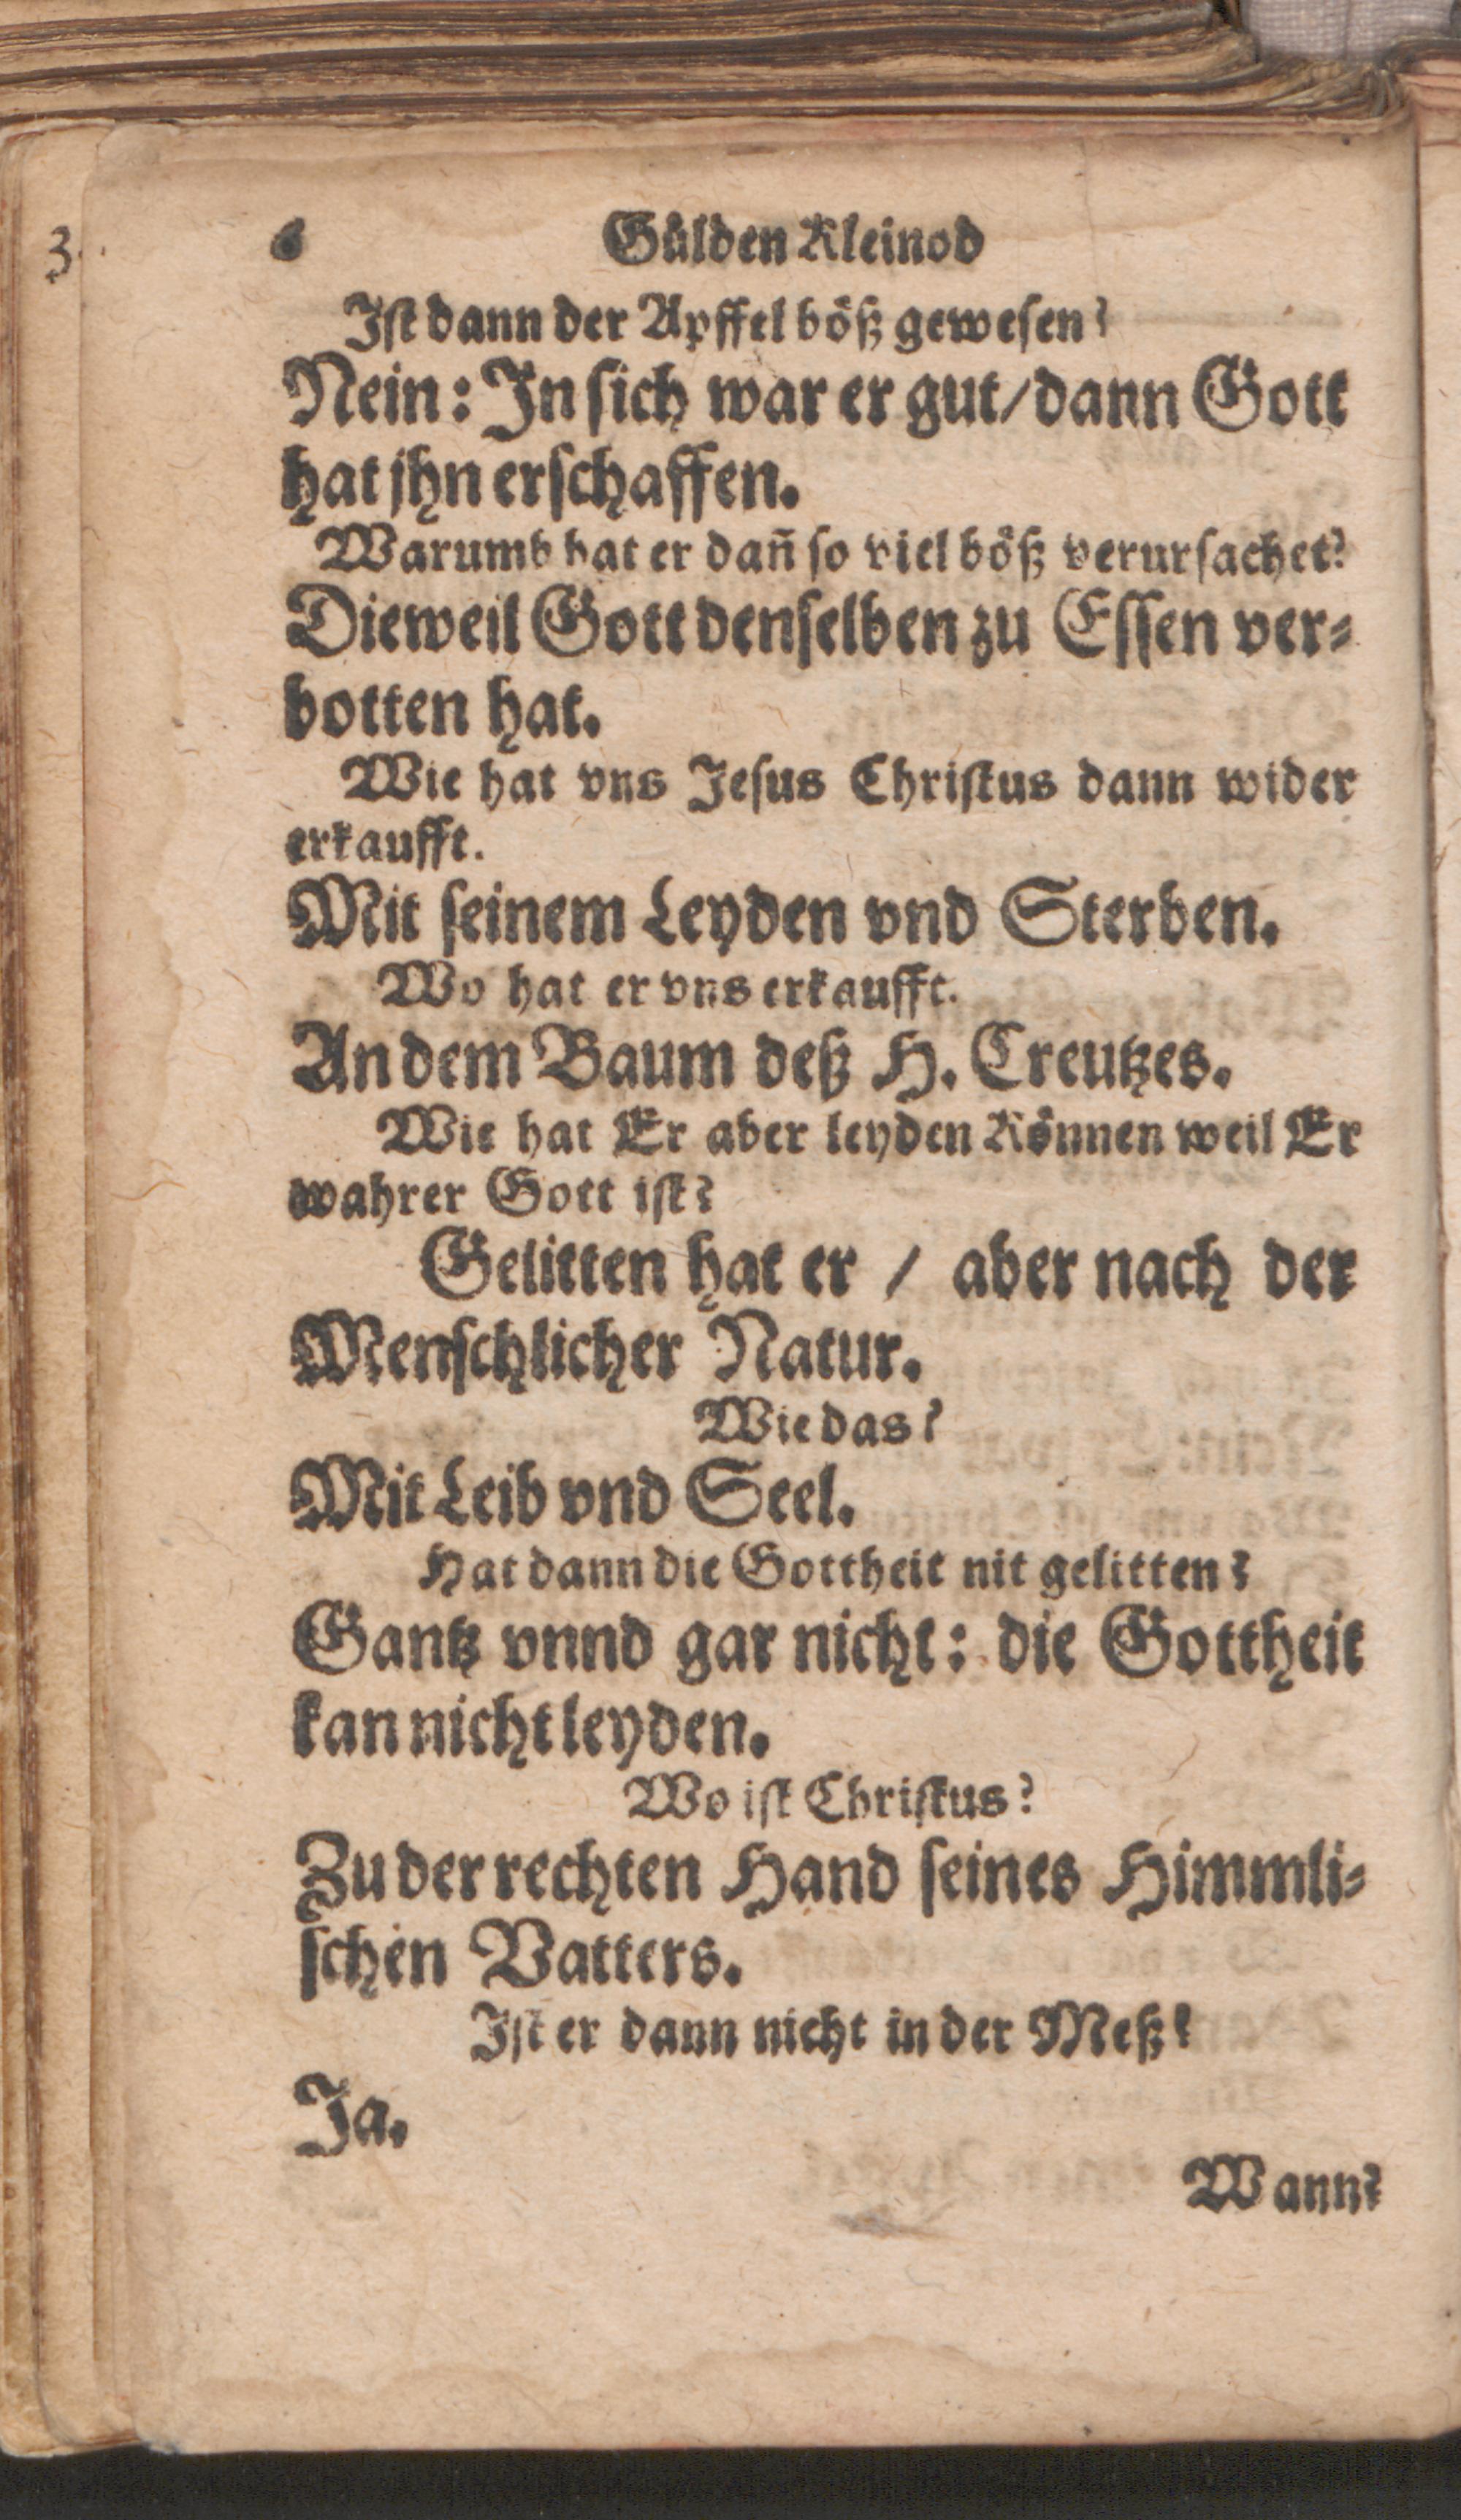 3.
6 Gülden Kleinod
Ist dann der Apffel böß gewesen?
Nein: In sich war er gut/dann Gott
hat jhn erschaffen.
Warumb hat er dañ so viel böß verursachet?
Dieweil Gott denselben zu Essen ver-
botten hat.
Wie hat vns Jesus Christus dann wider
erkaufft.
Mit seinem Leyden vnd Sterben.
Wo hat er vns erkaufft.
An dem Baum deß H. Creutzes.
Wie hat Er aber leyden Können weil Er
wahrer Gott ist?
Gelitten hat er / aber nach der
Menschlicher Natur.
Wie das?
Mit Leib vnd Seel.
Hat dann die Gottheit nit gelitten?
Gantz vnnd gar nicht: die Gottheit
kan nicht leyden.
Wo ist Christus?
Zu der rechten Hand seines Himmli-
schen Vatters.
Ist er dann nicht in der Meß?
Ja.
Wann?